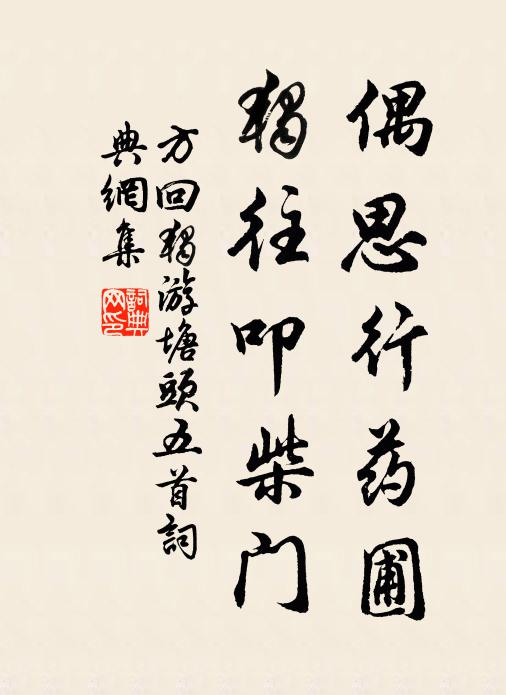 偶思行药圃
獨往叩柴门
方回獨游塘頭五首詞
典網集
詞典网印